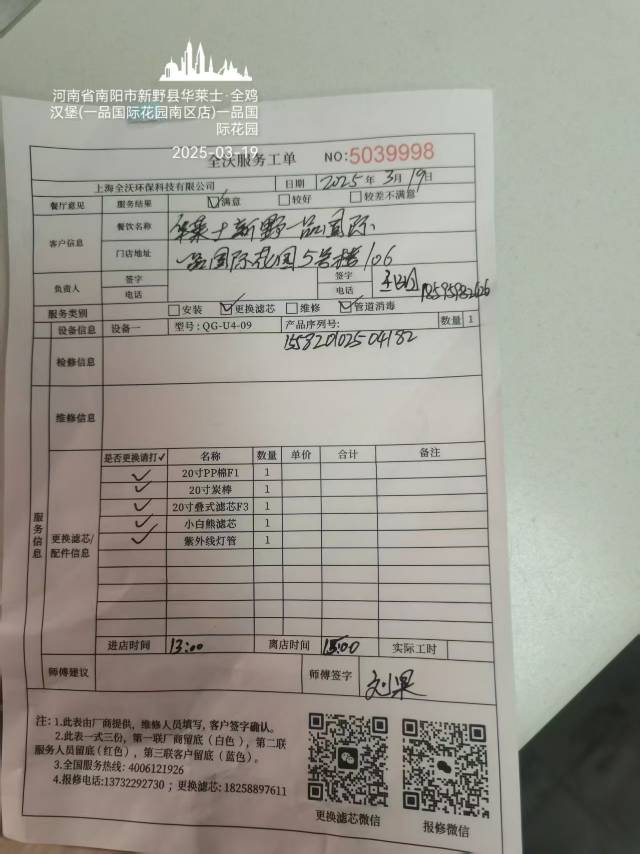 河南省南阳市新野县华莱士·全鸡
汉堡(一品国际花园南区店)一品国
际花园
2025-03-19
全沃服务工单 NO:5039998
上海全沃环保科技有限公司 日期 2025年3月19日
餐厅意见 服务结果 ☑满意 □较好 □较差不满意
客户信息 餐饮名称 华莱士新野一品国际
门店地址 一品国际花园5号楼106
负责人 签字 签字
电话 电话 18595982626
服务类别 □安装 ☑更换滤芯 □维修 ☑管道消毒
设备信息 设备一 型号:QG-U4-09 产品序列号: 数量 1
155820102504182
检修信息
维修信息
服务信息
更换滤芯/配件信息
是否更换请打✓ 名称 数量 单价 合计 备注
✓ 20寸PP棉F1 1
✓ 20寸炭棒 1
✓ 20寸叠式滤芯F3 1
✓ 小白熊滤芯 1
✓ 紫外线灯管 1
进店时间 13:00 离店时间 15:00 实际工时
师傅建议 师傅签字 刘果
注:1.此表由厂商提供,维修人员填写,客户签字确认。
2.此表一式三份,第一联厂商留底(白色),第二联
服务人员留底(红色),第三联客户留底(蓝色)。
3.全国服务热线:4006121926
4.报修电话:13732292730;更换滤芯:18258897611
更换滤芯微信 报修微信